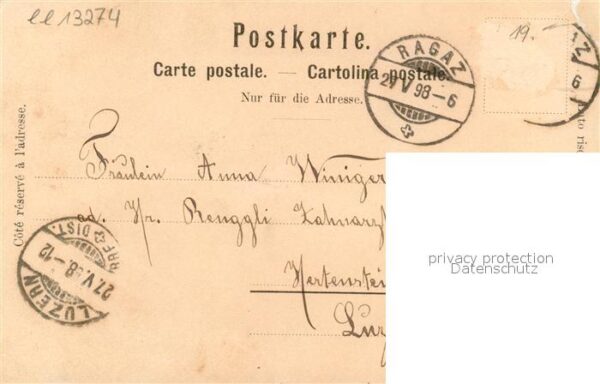 ee 13274
Postkarte.
Carte postale. — Cartolina postale.
Nur für die Adresse.
19.-
RAGAZ
27 V 98-6
Z
6
Côté réservé à l'adresse.
Fräulein Anna Winiger
ad. Hr. Renggli Zahnarz
Hertenstei
Luz
LUZERN
27. V. 98-12
DIST.
privacy protection
Datenschutz